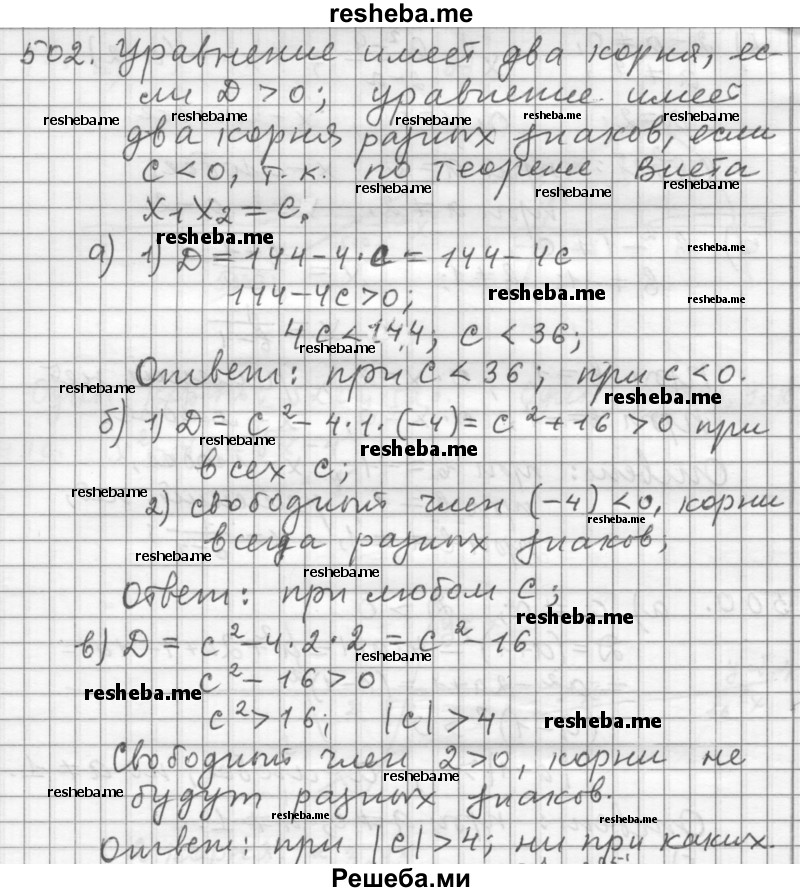 resheba.me
502. Уравнение имеет два корня, ес-
ли D > 0; уравнение имеет
resheba.me resheba.me resheba.me resheba.me resheba.me
два корня разных знаков, если
c < 0, т.к. по теореме Виета
resheba.me resheba.me resheba.me
x₁x₂ = c.
resheba.me
а) 1) D = 144 - 4·c = 144 - 4c
resheba.me
144 - 4c > 0;
resheba.me resheba.me
4c < 144; c < 36;
resheba.me
Ответ: при c < 36; при c < 0.
resheba.me resheba.me
б) 1) D = c² - 4·1·(-4) = c² + 16 > 0 при
resheba.me resheba.me
всех c;
resheba.me
2) свободный член (-4) < 0, корни
resheba.me
всегда разных знаков;
resheba.me
resheba.me
Ответ: при любом c;
resheba.me
в) D = c² - 4·2·2 = c² - 16
resheba.me
c² - 16 > 0
resheba.me
c² > 16; |c| > 4
resheba.me
Свободный член 2 > 0, корни не
resheba.me
будут разных знаков.
resheba.me resheba.me resheba.me
Ответ: при |c| > 4; ни при каких.
Решеба.ми